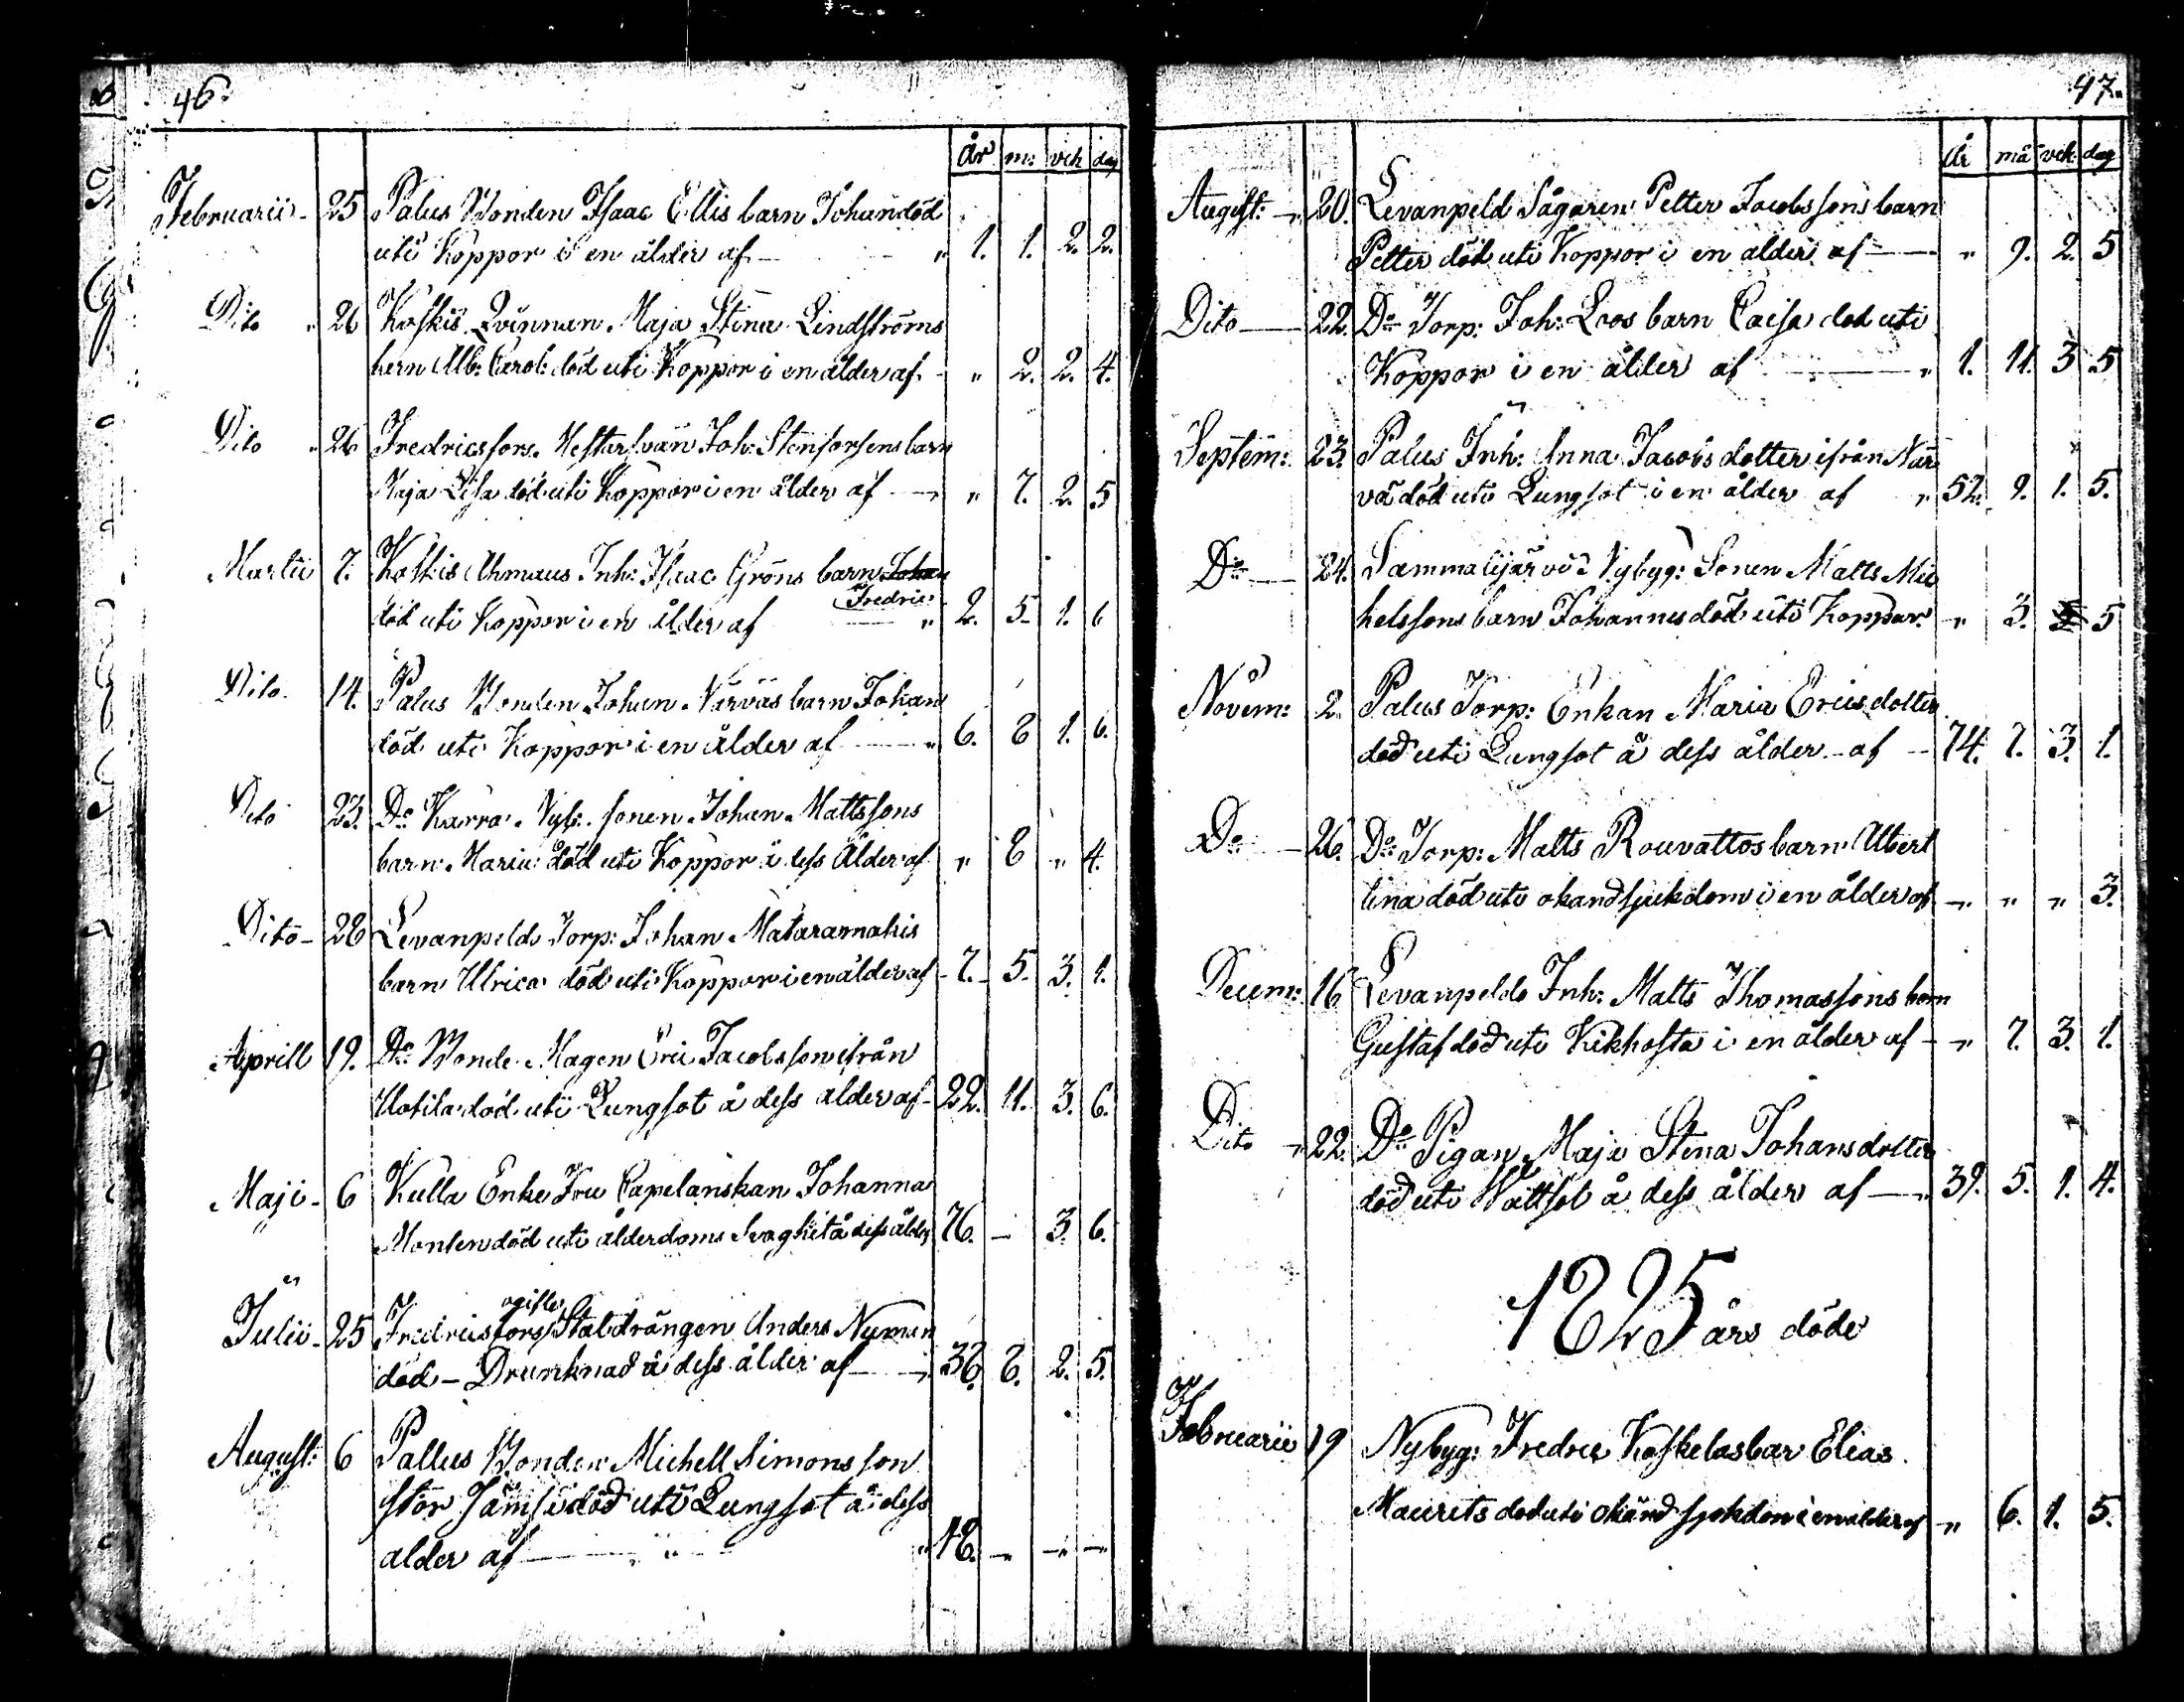 46.
År m: vck dag
Februarii 25 Palus Bonden Isaac Ellis barn Johan död
uti Koppor i en ålder af 1. 1. 2. 2.
Dito 26 Koskis Qvinnan Maja Stina Lindströms
barn Alb: Carol: död uti Koppor i en ålder af " 2. 2. 4.
Dito 26 Fredricsfors Joh: Stenforsens barn
Maja Lisa död uti Koppor i en ålder af " 7. 2. 5
Martii 7. Koskis Ahmaus Inh: Isaac Gröns barn Johan
Fredric
död uti Koppor i en ålder af 2. 5. 1. 6
Dito 14. Palus Bonden Johan Närväs barn Johan
död uti Koppor i en ålder af 6. 8 1. 6.
Dito 23. Do Karra Nyb: sonen Johan Mattssons
barn Maria död uti Koppor i dess Ålder af " 8 " 4.
Dito 28 Levanpelds Torp: Johan Mataramakis
barn Ulrica död uti Koppor i en ålder af 7. 5. 3. 1.
Aprill 19. Do Bonde Magen Eric Jacobsson ifrån
död uti Lungsot å dess ålder af 22. 11. 3. 6.
Maji 6 Kulla Enke Fru Capelanskan Johanna
Monten död uti ålderdoms Svaghet å dess ålder 76. — 3. 6.
Julii 25 Fredricsfors ogifte Stalldrängen Anders Nyman
död — Drunknad å dess ålder af 38. 8. 2. 5.
August: 6 Pallus Bonden Michell Simonsson
stor Jämsi död uti Lungsot å dess
ålder af 48. " " "
47.
år må vck dag
August: 20. Levanpeld Sågaren Petter Jacobssons barn
Petter död uti Koppor i en ålder af " 9. 2. 5
Dito 22. Do Torp: Joh: Loos barn Caisa död uti
Koppor i en ålder af 1. 11. 3 5
Septem: 23. Palus Inh: Anna Jacobsdotter ifrån När
vä död uti Lungsot i en ålder af 52. 9. 1. 5.
Do 24. Sammalijärvi Nybyg: Sonen Matts Mic
helssons barn Johannes död uti Koppor " 3. 5
Novem: 2. Palus Torp: Enkan Maria Ericsdotter
död uti Lungsot å dess ålder af 74. 7. 3. 1.
Do 26. Do Torp: Matts Rouvattos barn Albert
lina död uti okänd sjukdom i en ålder af " " " 3.
Decem: 16 Levanpelds Inh: Matts Thomassons barn
Gustaf död uti Kikhosta i en ålder af " 7. 3. 1.
Dito 22. Do Pigan Maja Stina Johansdotter
död uti Wattsot å dess ålder af 39. 5. 1. 4.
1825 års döde
Februarii 19 Nybyg: Fredric Koskelas bar Elias
Maurits död uti okänd sjukdom i en ålder af " 6. 1. 5.